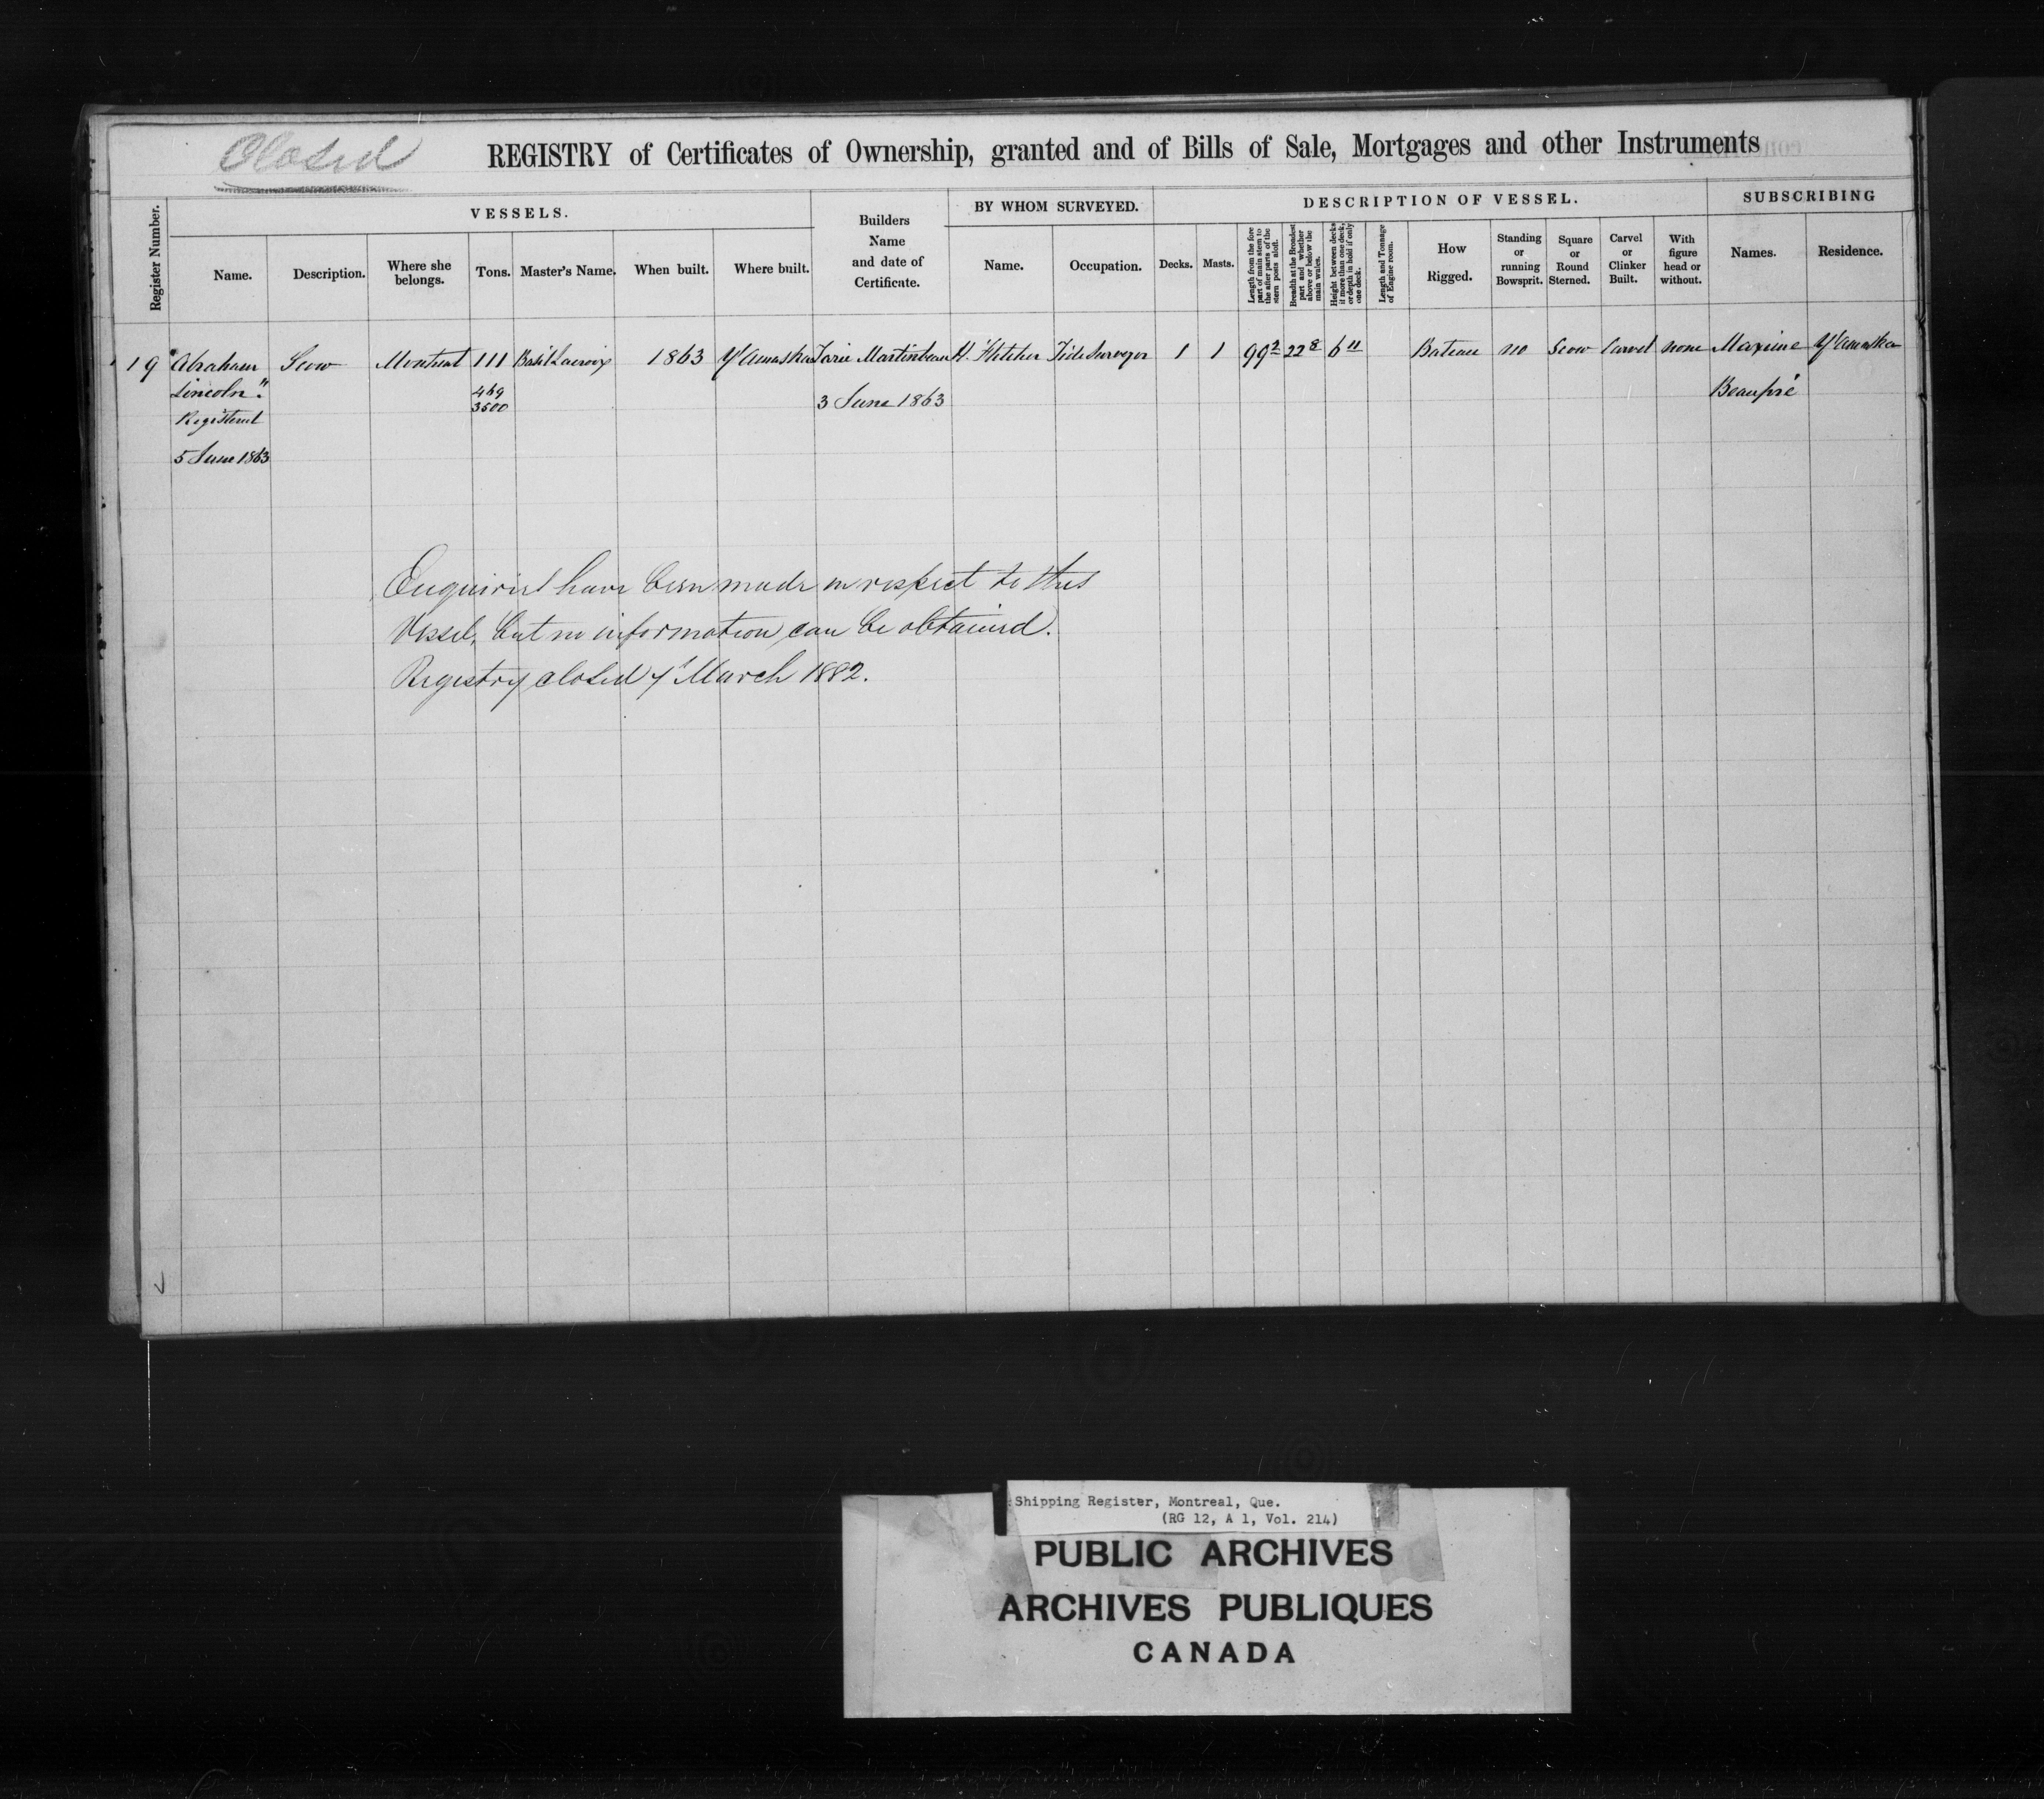 Closed
REGISTRY of Certificates of Ownership, granted and of Bills of Sale, Mortgages and other Instruments
Register Number.
VESSELS.
Name.
Description.
Where she belongs.
Tons.
Master's Name.
When built.
Where built.
Builders Name and date of Certificate.
BY WHOM SURVEYED.
Name.
Occupation.
DESCRIPTION OF VESSEL.
Decks.
Masts.
Length from the fore part of main stem to the after parts of the stern posts aloft.
Breadth at the Broadest part and whether above or below the main wales.
Height between decks if more than one deck, or depth in hold if only one deck.
Length and Tonnage of Engine room.
How Rigged.
Standing or running Bowsprit.
Square or Round Sterned.
Carvel or Clinker Built.
With figure head or without.
SUBSCRIBING
Names.
Residence.
19 "Abraham Scow Montreal 111 Basil Lacroix 1863 Yamaska Martinbeau H. Fletcher Tide Surveyor 1 1 99 2 22 8 6 11 Bateau no Scow Carvel none Maxime Yamaska
Lincoln" 469 3 June 1863 Beaupré
Registered 3500
5 June 1863
Enquiries have been made in respect to this
Vessel, but no information can be obtained.
Registry closed March 1882.
Shipping Register, Montreal, Que.
(RG 12, A 1, Vol. 214)
PUBLIC ARCHIVES
ARCHIVES PUBLIQUES
CANADA